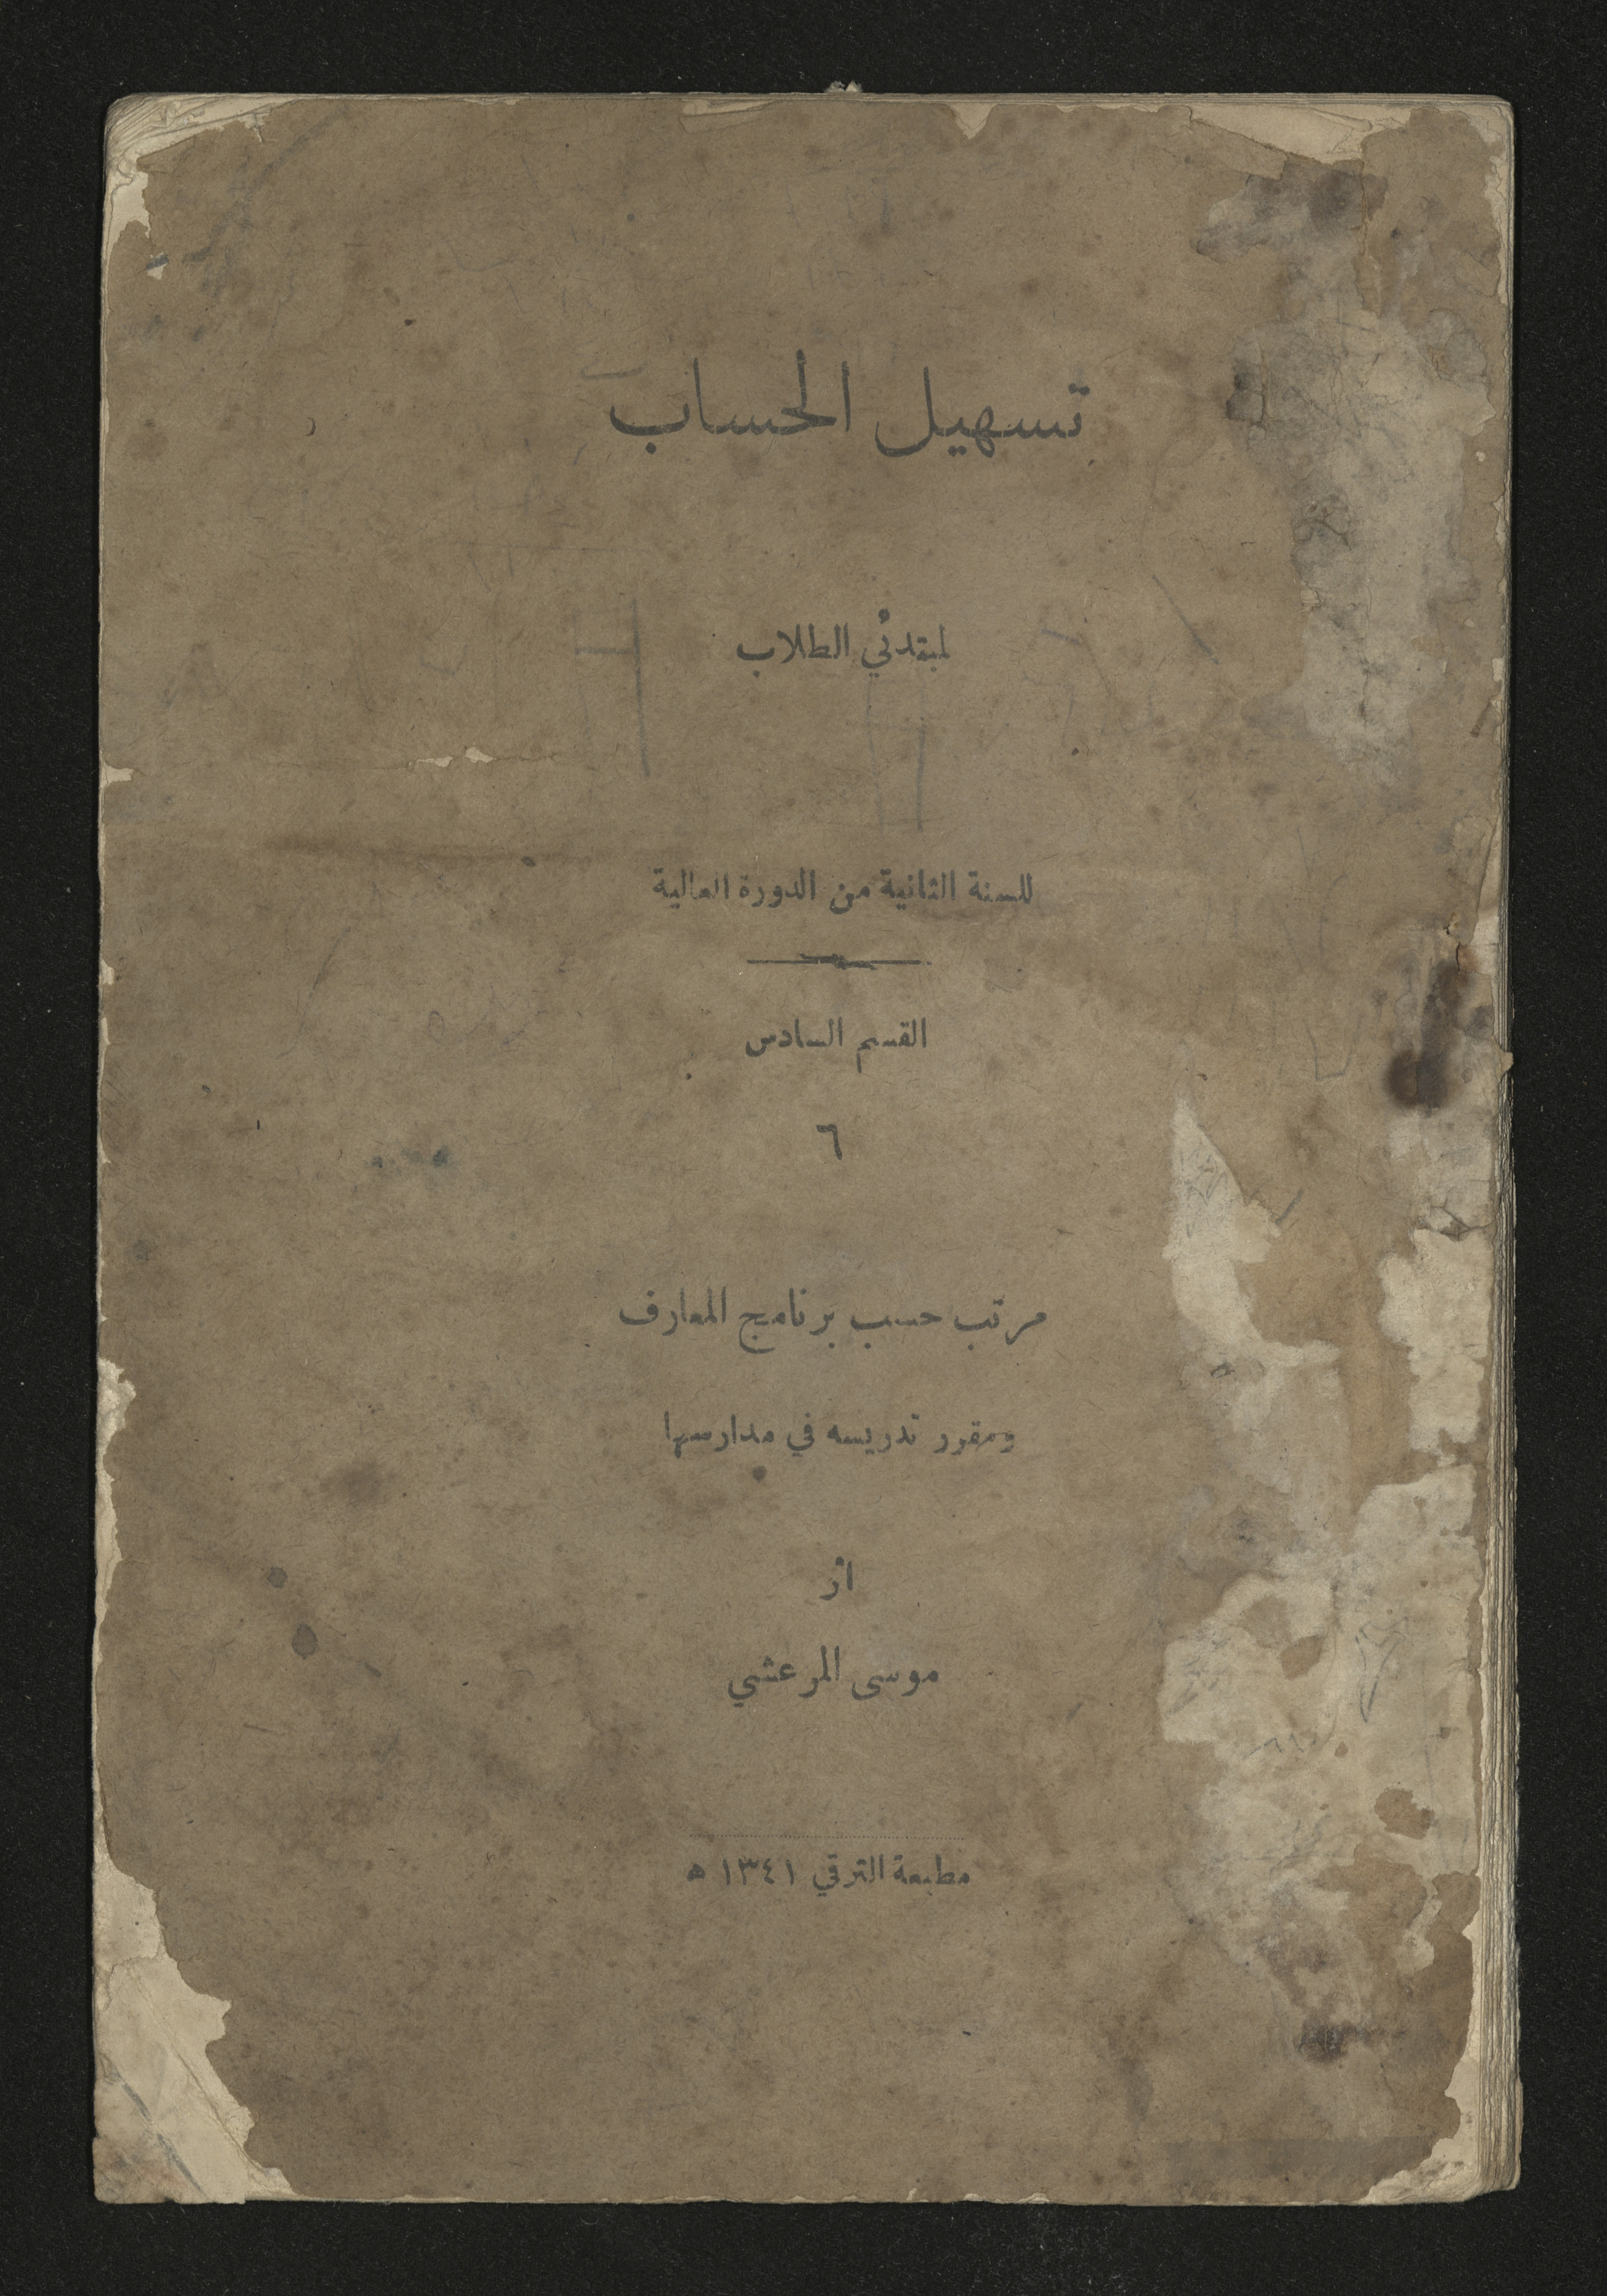 تسهيل الحساب
لمبتدئي الطلاب
للسنة الثانية من الدورة العالية
القسم السادس
٦
مرتب حسب برنامج المعارف
ومقرر تدريسه في مدارسها
اثر
موسى المرعشي
مطبعة الترقي ١٣٤١ ه